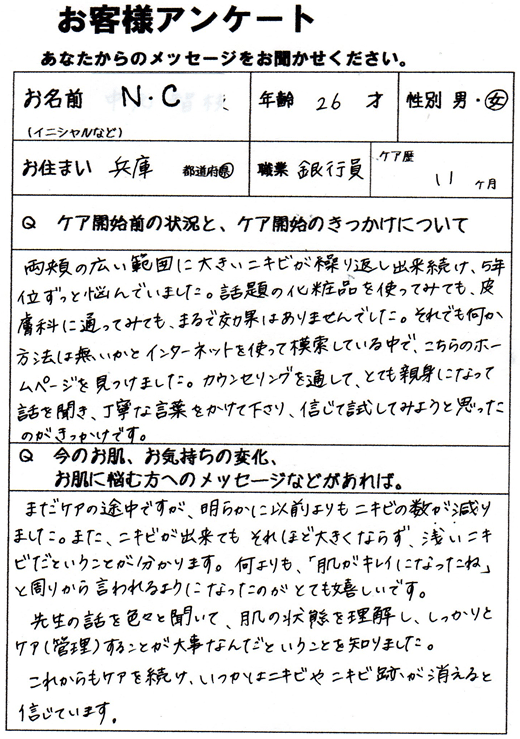 お客様アンケート
あなたからのメッセージをお聞かせください。
お名前 N・C 年齢 26 才 性別 男・女
(イニシャルなど)
お住まい 兵庫 都道府県 職業 銀行員 ケア歴 11 ヶ月
Q ケア開始前の状況と、ケア開始のきっかけについて
両頬の広い範囲に大きいニキビが繰り返し出来続け、5年
位ずっと悩んでいました。話題の化粧品を使ってみても、皮
膚科に通ってみても、まるで効果はありませんでした。それでも何か
方法は無いかとインターネットを使って模索している中で、こちらのホー
ムページを見つけました。カウンセリングを通して、とても親身になって
話を聞き、丁寧な言葉をかけて下さり、信じて試してみようと思った
のがきっかけです。
Q 今のお肌、お気持ちの変化、
お肌に悩む方へのメッセージなどがあれば。
まだケアの途中ですが、明らかに以前よりもニキビの数が減り
ました。また、ニキビが出来てもそれほど大きくならず、浅いニキ
ビだということが分かります。何よりも、「肌がキレイになったね」
と周りから言われるようになったのがとても嬉しいです。
先生の話を色々と聞いて、肌の状態を理解し、しっかりと
ケア(管理)することが大事なんだということを知りました。
これからもケアを続け、いつかはニキビやニキビ跡が消えると
信じています。